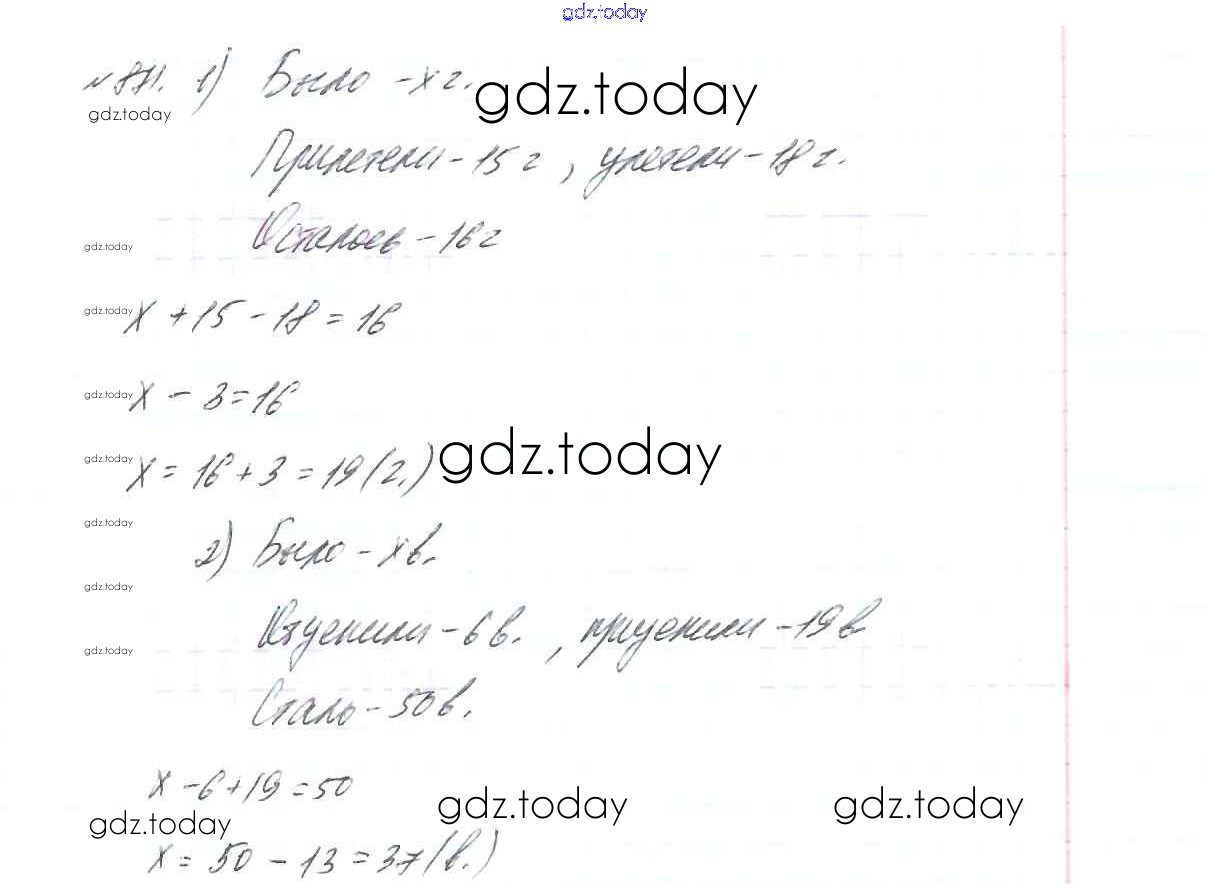 gdz.today
№871. 1) Было - x г.
gdz.today
gdz.today
Прилетели - 15 г, улетели - 18 г.
Осталось - 16 г
gdz.today
gdz.today
x + 15 - 18 = 16
gdz.today
x - 3 = 16
gdz.today
gdz.today
x = 16 + 3 = 19 (г.)
gdz.today
2) Было - x в.
gdz.today
Отцепили - 6 в. , прицепили - 19 в
gdz.today
Стало - 50 в.
x - 6 + 19 = 50
gdz.today
gdz.today
gdz.today
x = 50 - 13 = 37 (в.)